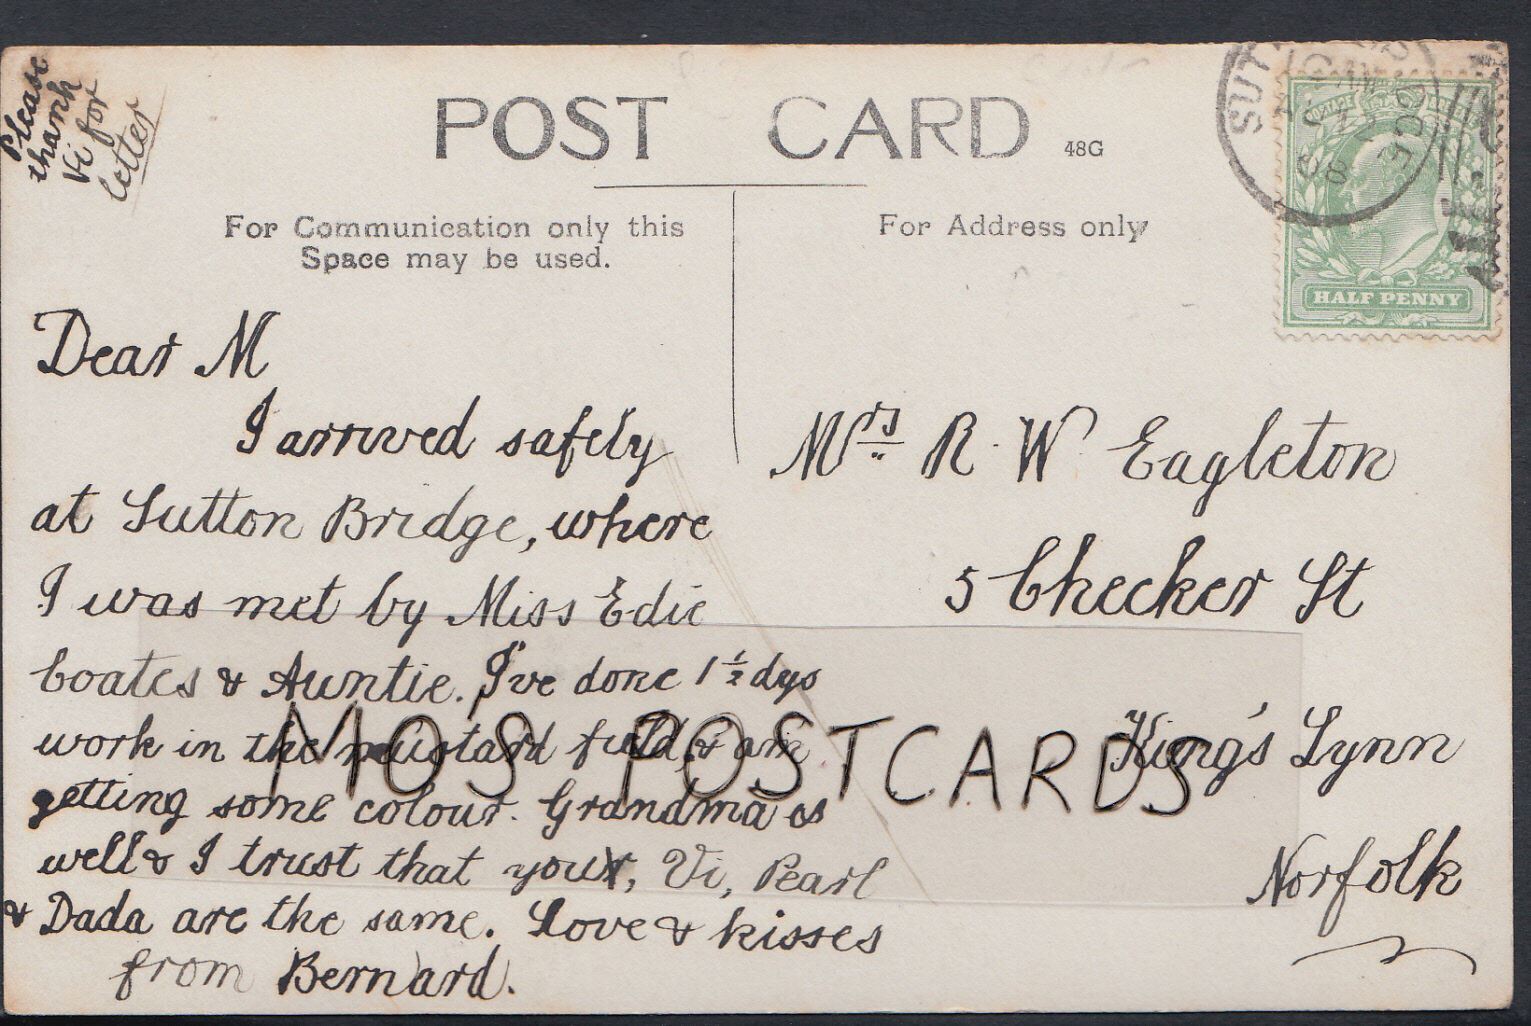 Please
thank
Vi for
letter
POST CARD 48G
For Communication only this
Space may be used.
For Address only
SUT
08
HALF PENNY
Dear M
I arrived safely
at Sutton Bridge, where
I was met by Miss Edie
Coates & Auntie. I've done 1 1/2 dys
work in the mustard field, & am
getting some colour. Grandma is
well & I trust that you, Vi, Pearl
& Dada are the same. Love & kisses
from Bernard.
Mrs R. W Eagleton
5 Checker St
King's Lynn
Norfolk
MO'S POSTCARDS